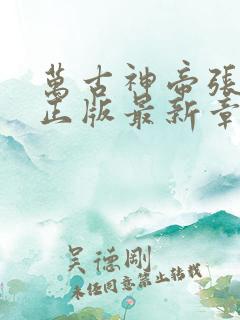 萬古神帝張
正版最新章
吴德刚
未经同意禁止转载